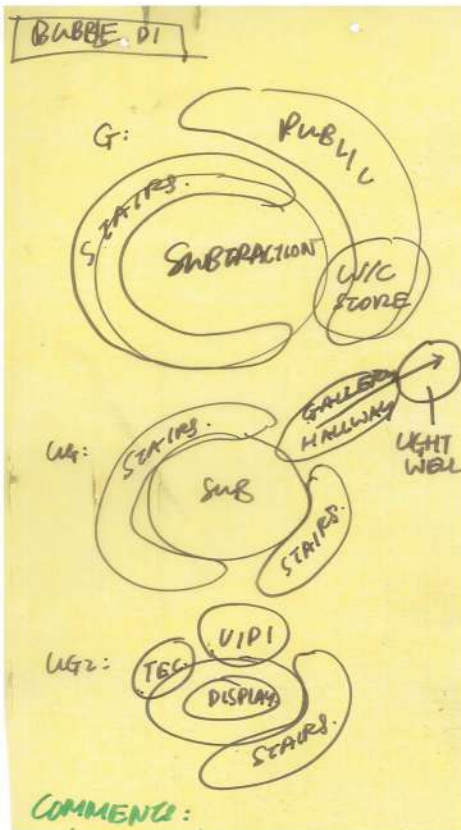 BUBBLE DI
G:
PUBLIC
STAIRS.
SUBTRACTION
W/C
STORE
UG:
STAIRS.
GALLERY
HALLWAY
LIGHT
WELL
SUB
STAIRS.
UG2:
V/P1
TEC
DISPLAY
STAIRS.
COMMENTS: